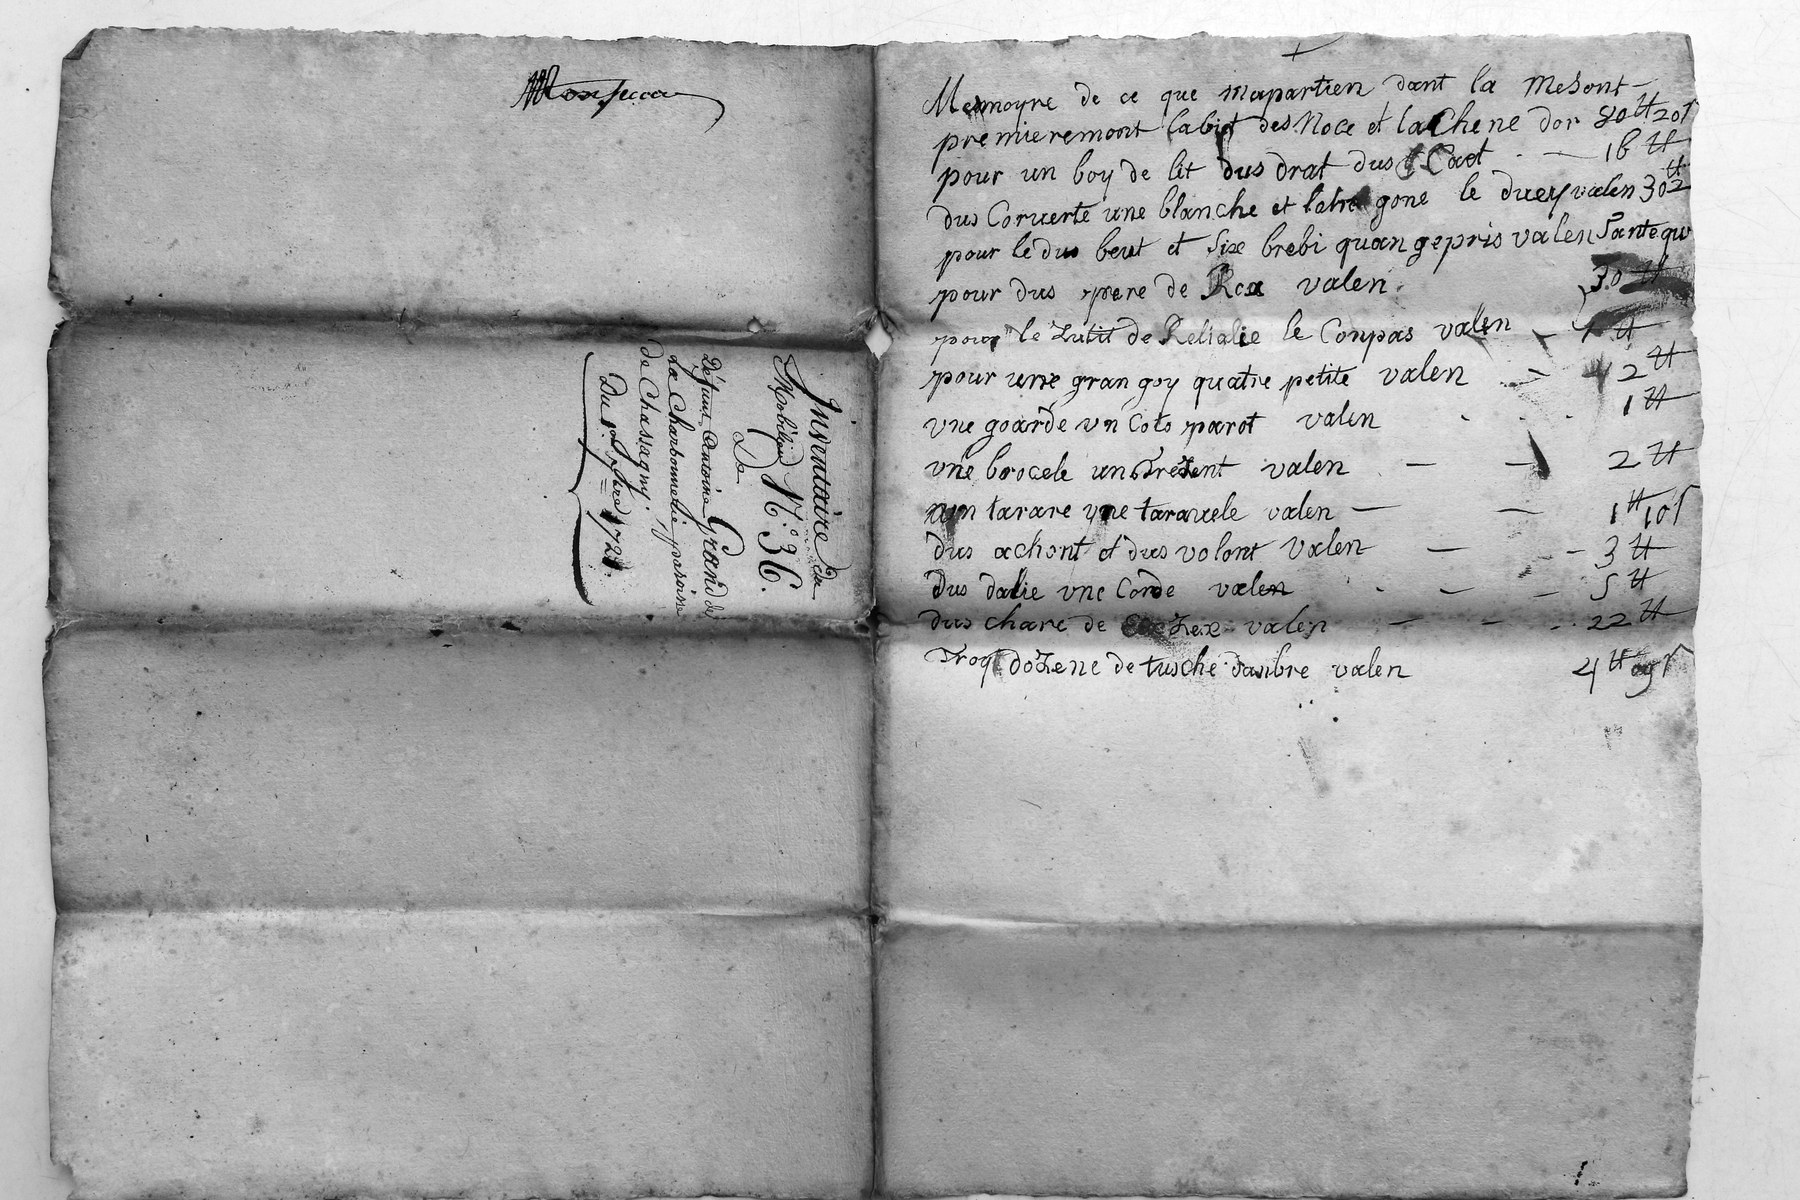 Monsieur
Inventaire du
Mobilier N.° 36.
De
Défunt Antoine Grand de
La Charbonnetie, paroisse
de Chassagny.
Du 1.er 7bre 172
+
Memoyre de ce que mapartien dant la Mesont
premieremont labit des Noce et la Chene dor 80 ₶ 20 s
pour un boy de lit dus drat dus 16 ₶
dus Coruerte une blanche et latre gone le duey valen 30 ₶
pour le dus beut et six brebi quan gepris valen
pour dus pere de Roa valen 30 ₶
pour le Zutit de Relialie le Conpas valen ₶
pour une gran goy quatre petite valen 2 ₶
vne goarde vn Coto parot valen 1 ₶
vne brocele un Trezent valen 2 ₶
un tarare yne taravele valen 1 ₶ 10 s
dus achont et dus volont valen 3 ₶
dus dalie vne Corde valen 5 ₶
dus chare de valen 22 ₶
Troy doZene de tusche danbre valen 4 ₶